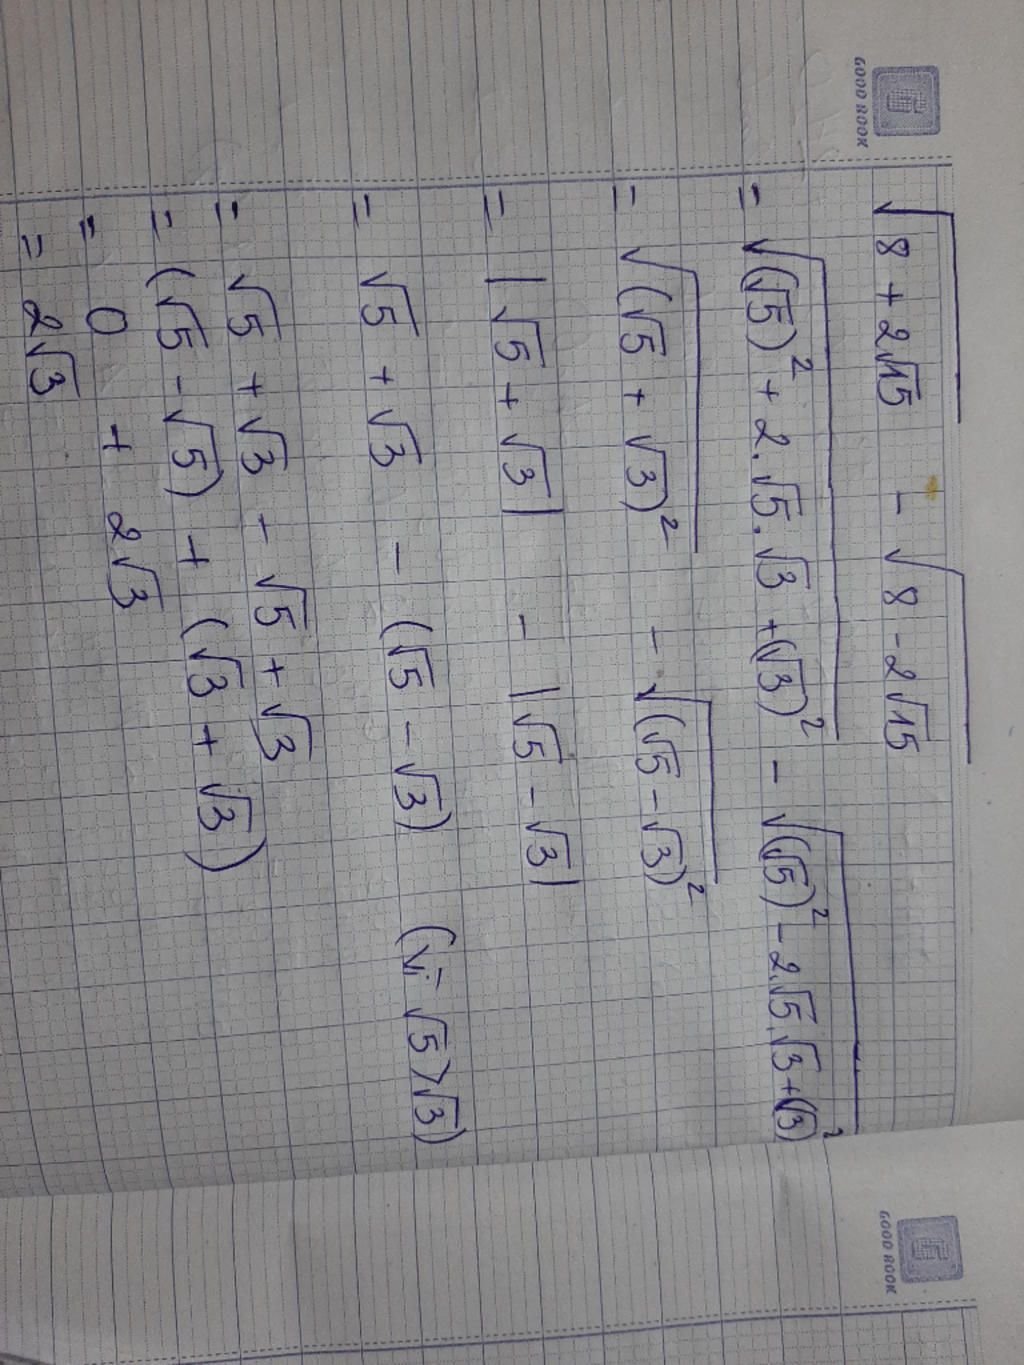 GOOD BOOK
√(8 + 2√15) - √(8 - 2√15)
= √((√5)² + 2.√5.√3 + (√3)²) - √((√5)² - 2.√5.√3 + (√3)²)
= √((√5 + √3)²) - √((√5 - √3)²)
= |√5 + √3| - |√5 - √3|
= √5 + √3 - (√5 - √3) (vì √5 > √3)
= √5 + √3 - √5 + √3
= (√5 - √5) + (√3 + √3)
= 0 + 2√3
= 2√3
GOOD BOOK